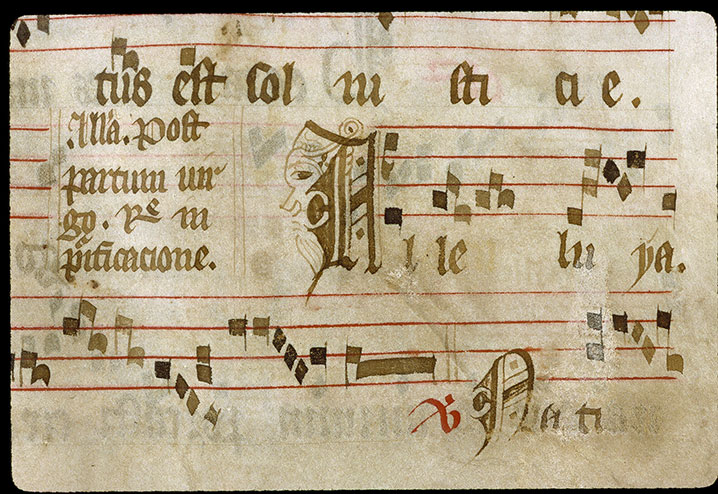 tus est sol iu sti ci e.
Alla. Post
partum uir
go. Re in
pificacione.
Alle lu ya.
℣ Nati